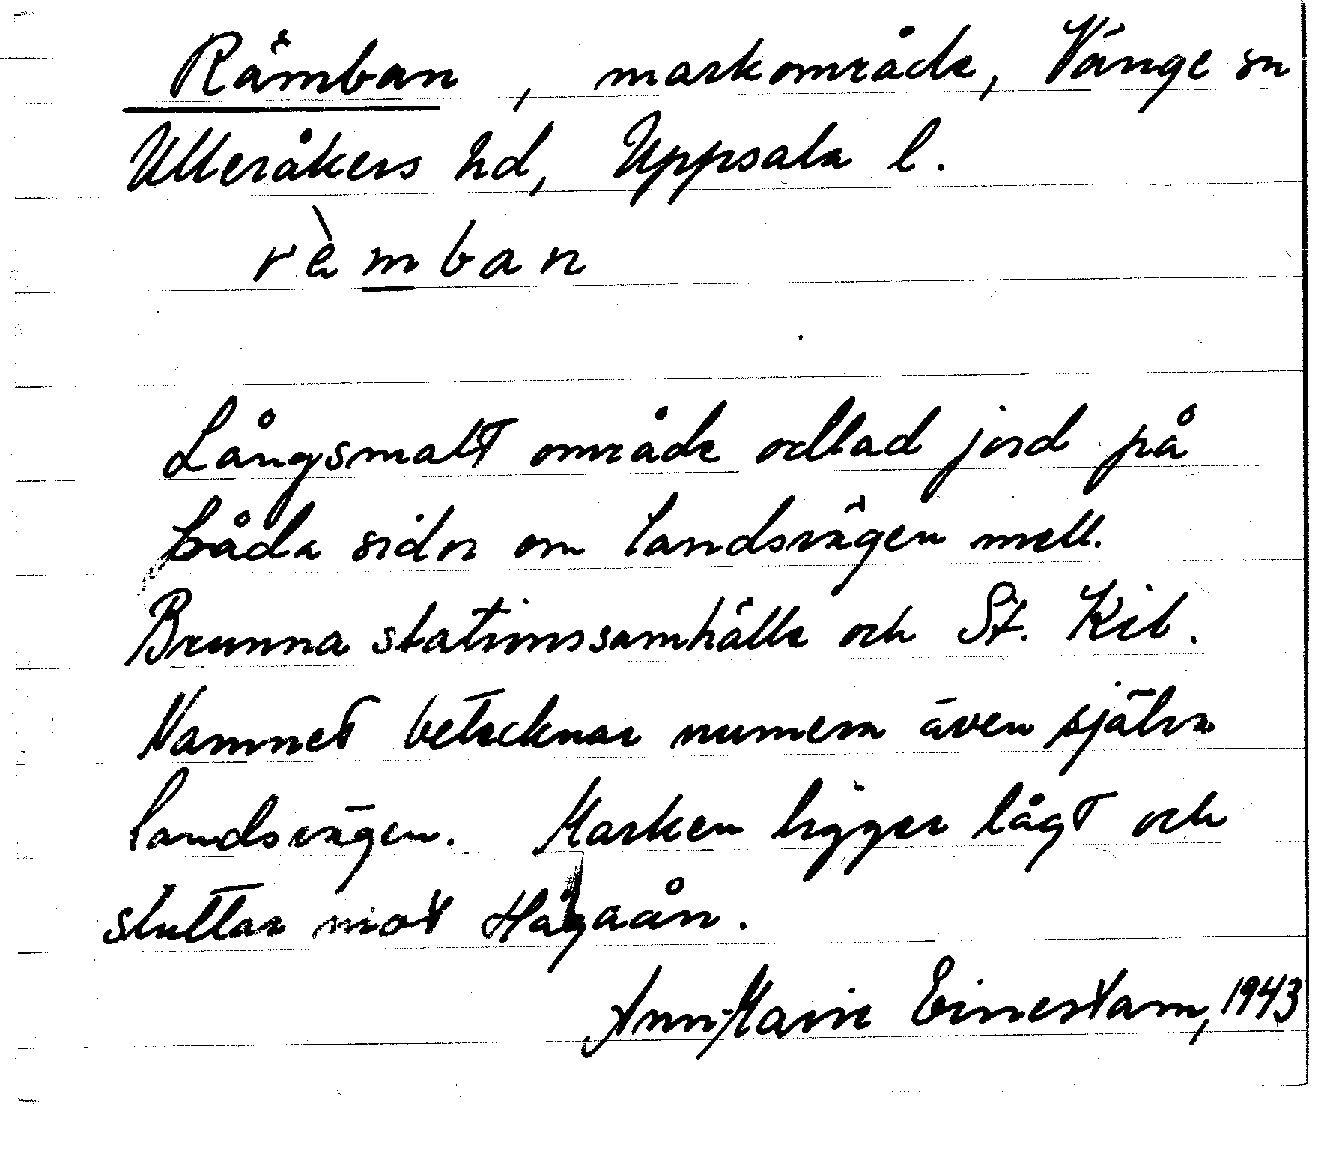 Rämban, markområde, Vänge sn
Ulleråkers hd, Uppsala l.
rèmban
Långsmalt område odlad jord på
båda sidor om landsvägen mell.
Brunna stationssamhälle och St. Kil.
Namnet betecknar numera även själva
landsvägen. Marken ligger lågt och
sluttar mot Hågaån.
Ann-Marie Einestam, 1943